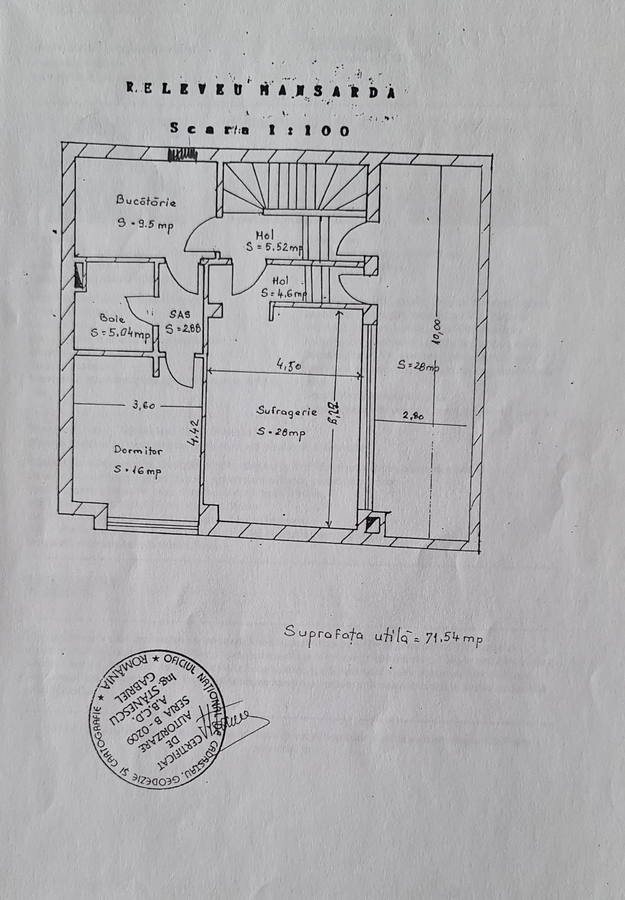 RELEVEU MANSARDA
Scara 1:100
Bucătărie
S = 9.5 mp
Hol
S = 5.52mp
Hol
S = 4.6mp
SAS
S = 2.88
Baie
S = 5.04mp
10,00
S = 28mp
4,50
3,60
2,80
Sufragerie
S = 28mp
4,42
Dormitor
S = 16mp
Suprafața utilă = 71,54 mp
ROMÂNIA ★ OFICIUL NAȚIONAL DE CADASTRU, GEODEZIE ȘI CARTOGRAFIE ★
CERTIFICAT
DE
AUTORIZARE
SERIA B - 0209
A.B.C.D.
Ing. STĂNESCU
GABRIEL